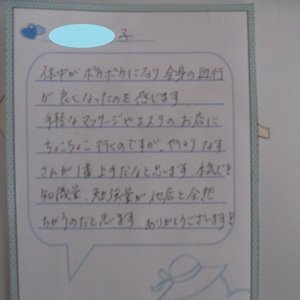 子
体中がポカポカになり全身の血行
が良くなったのを感じます
手軽なマッサージやエステのお店に
ちょこちょこ行くのですが、やっぱりなす
さんが1番上手だなと思います。本気で
知識量、勉強量が他店と全然
ちがうのだと思います ありがとうございます!!